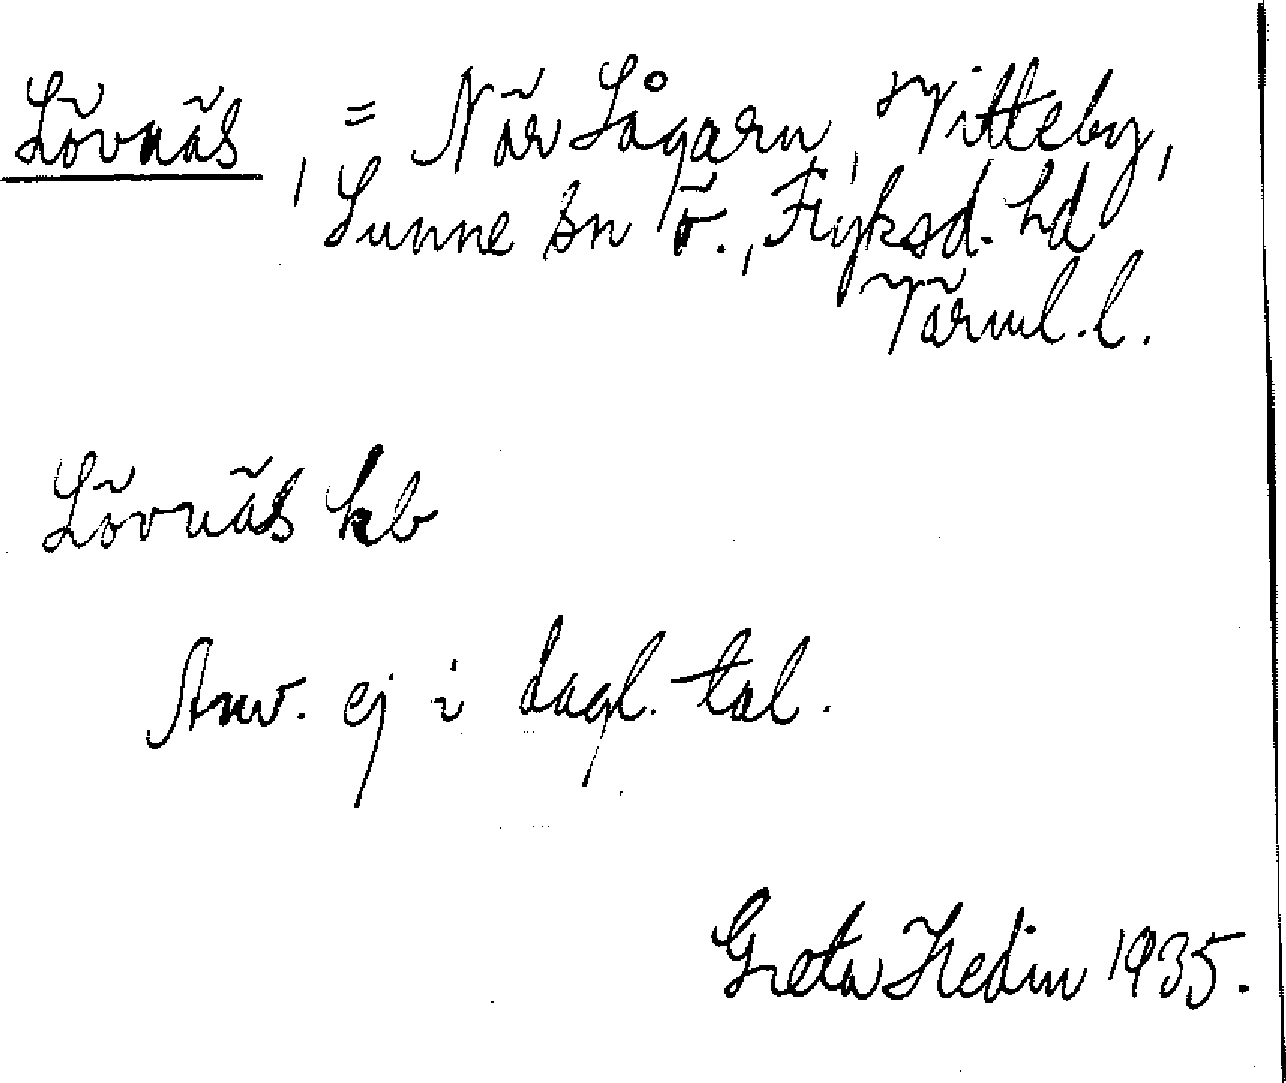 Lövnäs, = När Lågarn, Vitteby,
Sunne sn ö., Fryksd. hd
Värml. l.
Lövnäs kb
Anv. ej i dagl. tal.
Greta Hedin 1935.